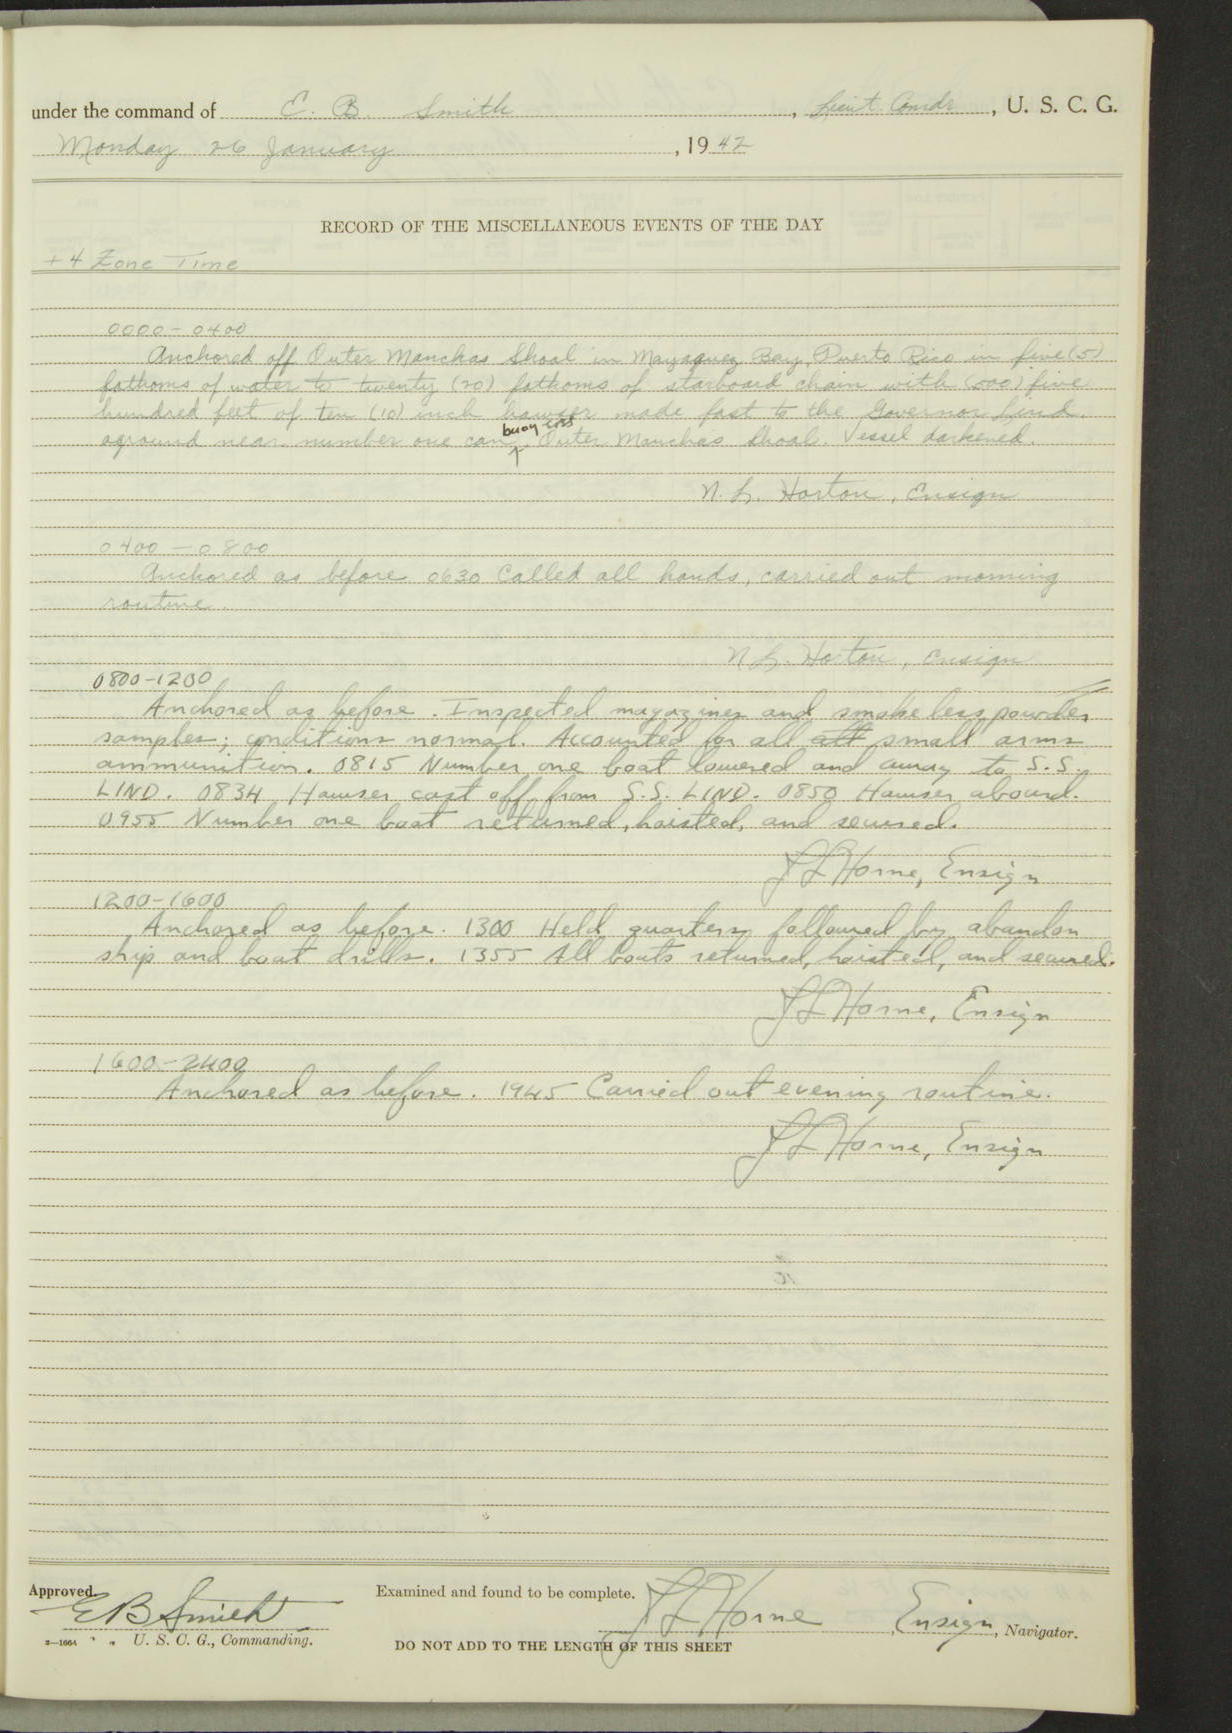 under the command of E. B. Smith, Lieut. Comdr, U. S. C. G.
Monday 26 January, 1942
RECORD OF THE MISCELLANEOUS EVENTS OF THE DAY
+4 Zone Time
0000-0400
Anchored off Outer Manchas Shoal in Mayaguez Bay, Puerto Rico in five (5)
fathoms of water to twenty (20) fathoms of starboard chain with (500) five
hundred feet of ten (10) inch hawser made fast to the Governor Lind.
aground near number one can buoy, Outer Manchas Shoal. Vessel darkened.
N. L. Horton, Ensign
0400-0800
Anchored as before 0630 Called all hands, carried out morning
routine.
N. L. Horton, Ensign
0800-1200
Anchored as before. Inspected magazines and smokeless powder
samples; conditions normal. Accounted for all all small arms
ammunition. 0815 Number one boat lowered and away to S.S.
LIND. 0834 Hawser cast off from S.S. LIND. 0850 Hawser aboard.
0955 Number one boat returned, hoisted, and secured.
J L Horne, Ensign
1200-1600
Anchored as before. 1300 Held quarters followed by abandon
ship and boat drills. 1355 All boats returned, hoisted, and secured.
J L Horne, Ensign
1600-2400
Anchored as before. 1945 Carried out evening routine.
J L Horne, Ensign
Approved.
E B Smith
U. S. C. G., Commanding.
Examined and found to be complete.
J L Horne, Ensign, Navigator.
2-1664
DO NOT ADD TO THE LENGTH OF THIS SHEET